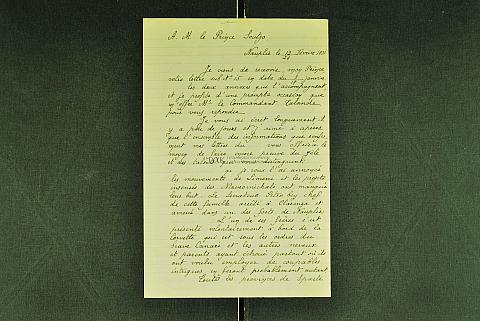 A. M. le Prince Soutzo
Nauplie le 12/24 Février 1831
Je viens de recevoir, mon Prince
votre lettre sub № 15 en date du janvier
les deux annexes qui l'accompagnent
et je profite d'une prompte occasion que
m'offre Mr. le Commandant Lalande
pour vous répondre.
Je vous ai écrit longuement il
y a peu de jours et j'aime à
que l'ensemble des informations que renfer
ment mes lettres du vous offrira le
moyen de faire encore preuve du zèle
et des qui vous distinguent.
je vous l'ai annoncé
les mouvements de Limeni et les projets
insensés des Mavromichalis ont manqué
leur but. Le Senateur Petro bey chef
de cette famille arrêté à
amené dans un des forts de Nauplie.
L'un de ses frères s'est
présenté volontairement à bord de la
Corvette qui est sous les ordres du
brave Canari et les autres neveux
et parents ayant échoué partout où ils
ont voulu employer de coupables
intrigues en feront probablement autant
Toutes les provinces de Sparte